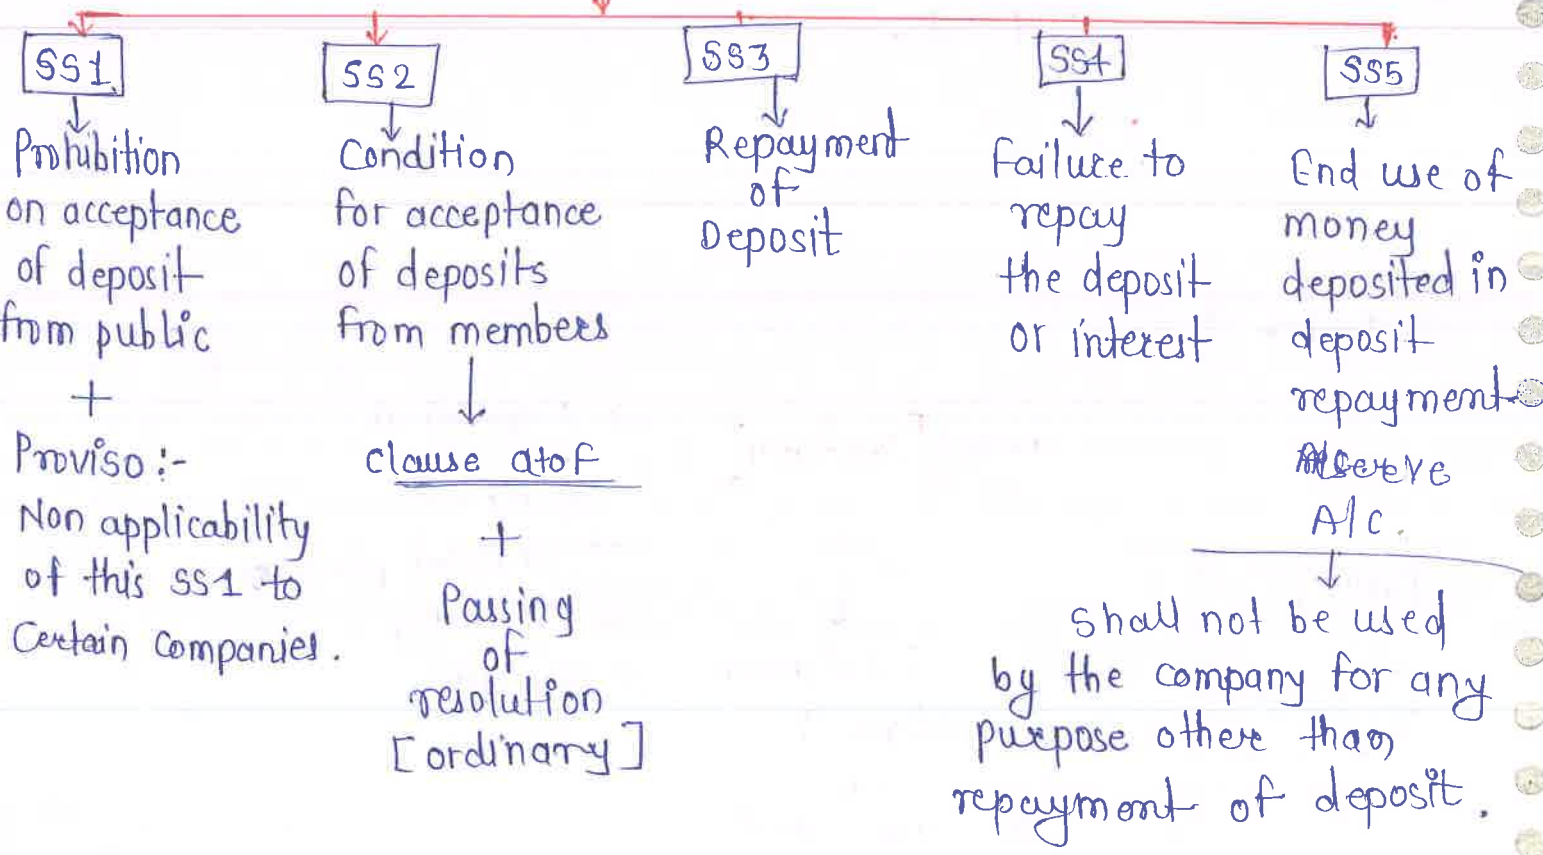 SS1
Prohibition
on acceptance
of deposit
from public
+
Proviso :-
Non applicability
of this SS1 to
Certain Companies.
SS2
Condition
for acceptance
of deposits
from members
clause a to f
+
Passing
of
resolution
[ordinary]
SS3
Repayment
of
Deposit
SS4
Failure to
repay
the deposit
or interest
SS5
End use of
money
deposited in
deposit
repayment
reserve
A/c.
shall not be used
by the company for any
purpose other than
repayment of deposit.